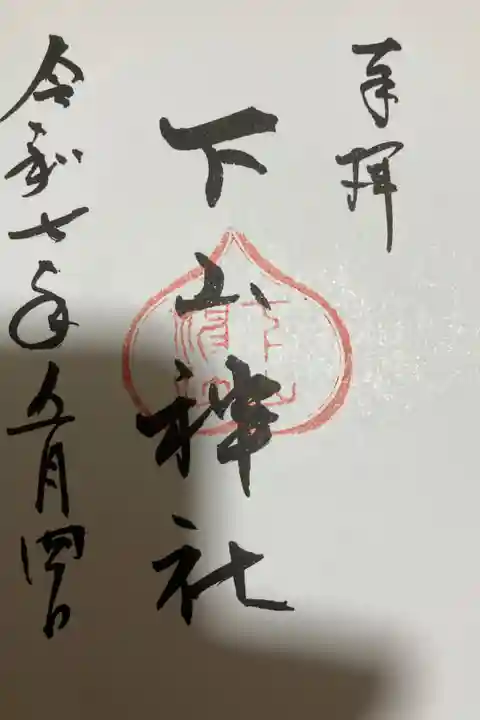 奉拝
下山神社
令和七年五月四日